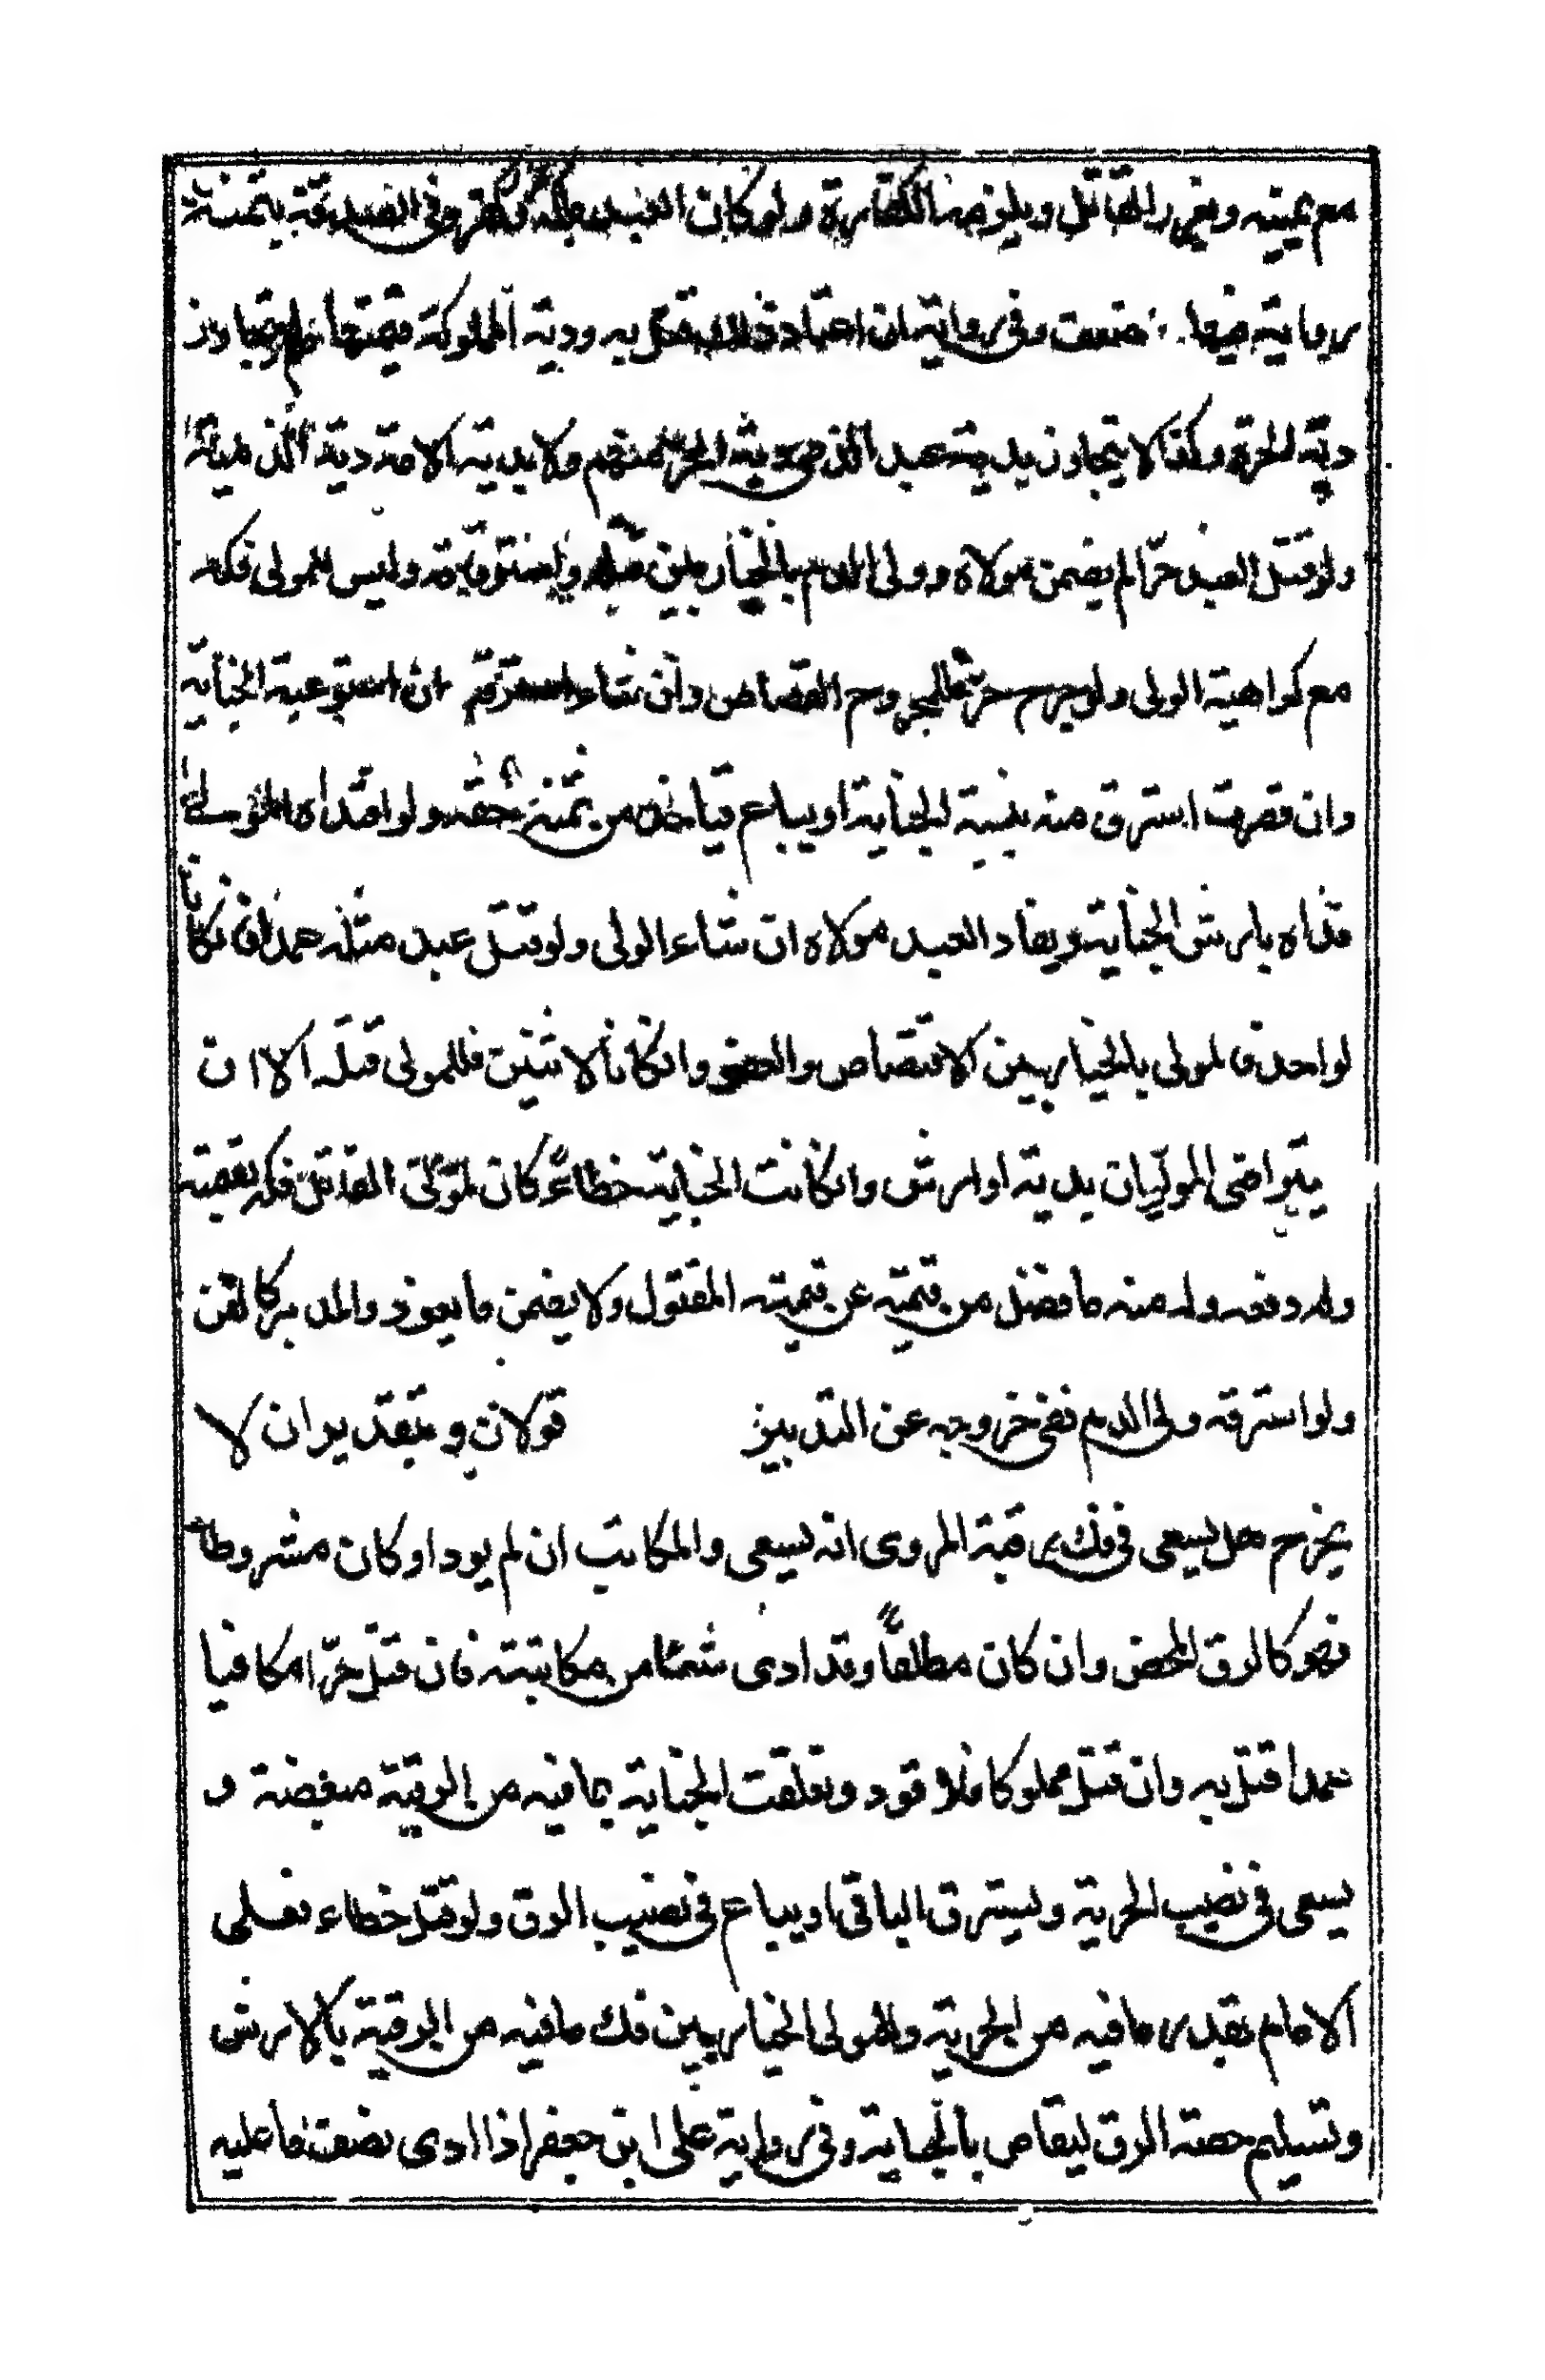 مع يمينه ويغرر القاتل ويلزمه الكفارة ولو كان العبد ملكه كفر وفي الصدقة بثمنه
رواية فيها ضعف وفي رواية ان اعتاد ذلك قتل به ودية المملوكة قيمتها ولو تجاوز
دية الحرة وكذا لا يتجاوز بدية عبد الذمي دية الحر منهم ولا بدية الامة دية الذمية
ولو قتل العبد حرّا لم يضمن مولاه وولى الدم بالخيار بين قتله واسترقاقه وليس للمولى فكه
مع كراهية الولى ولو جرح حرّا فللمجروح القصاص وان شاء استرقّه ان استوعبته الجناية
وان قصرت استرق منه بنسبة الجناية او يباع فياخذ من ثمنه حقه ولو افتداه المولى
فداه بارش الجناية ويقاد العبد مولاه ان شاء الولى ولو قتل عبد مثله عمدا فان كانا
لواحد فالمولى بالخيار بين الاقتصاص والعفو وانكانا لاثنين فللمولى قتله الا ان
يتراضى الموليان بدية او ارش وانكانت الجناية خطاءً كان لمولى القاتل فكه بقيمته
وله دفعه وله منه ما فضل من قيمته عن قيمته المقتول ولا يضمن ما يعوز والمدبر كالقن
ولو استرقه ولى الدم ففى خروجه عن التدبير قولان وبتقدير ان لا
يخرج هل يسعى في فك رقبة المروى انه يسعى والمكاتب ان لم يود او كان مشروطا
فهو كالرق المحض وان كان مطلقًا وقد ادى شيئا من مكاتبته فان قتل حرّا مكافيا
عمدا قتل به وان قتل مملوكا فلا قود وتعلقت الجناية بما فيه من الرقية مبعضة و
يسعى في نصيب الحرية ويسترق الباقى او يباع في نصيب الرق ولو قتل خطاء فعلى
الامام بقدر ما فيه من الحرية والمولى الخيار بين فك ما فيه من الرقية بالارش
وتسليم حصة الرق ليقاص بالجناية وفي رواية على ابن جعفر اذا ادى نصف ما عليه